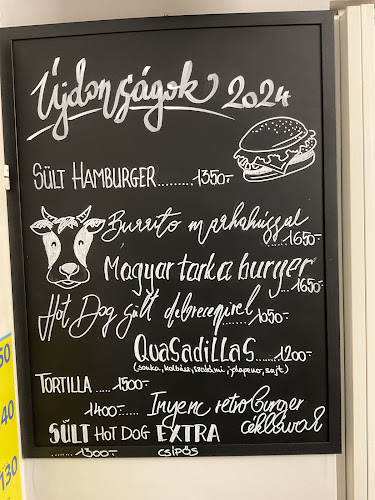 Újdonságok 2024
SÜLT HAMBURGER.........1350.-
Burrito marhahússal
.....1650.-
Magyar tarka burger
....1650.-
Hot Dog sült debrecenivel
....1050.-
QUASADILLAS......1200.-
(sonka, kolbász, szalámi, jalapeno, sajt)
TORTILLA.....1500.-
1400.-..... Inyenc retro burger
céklával
SÜLT HOT DOG EXTRA
CSÍPŐS
.......1300.-
50
40
130